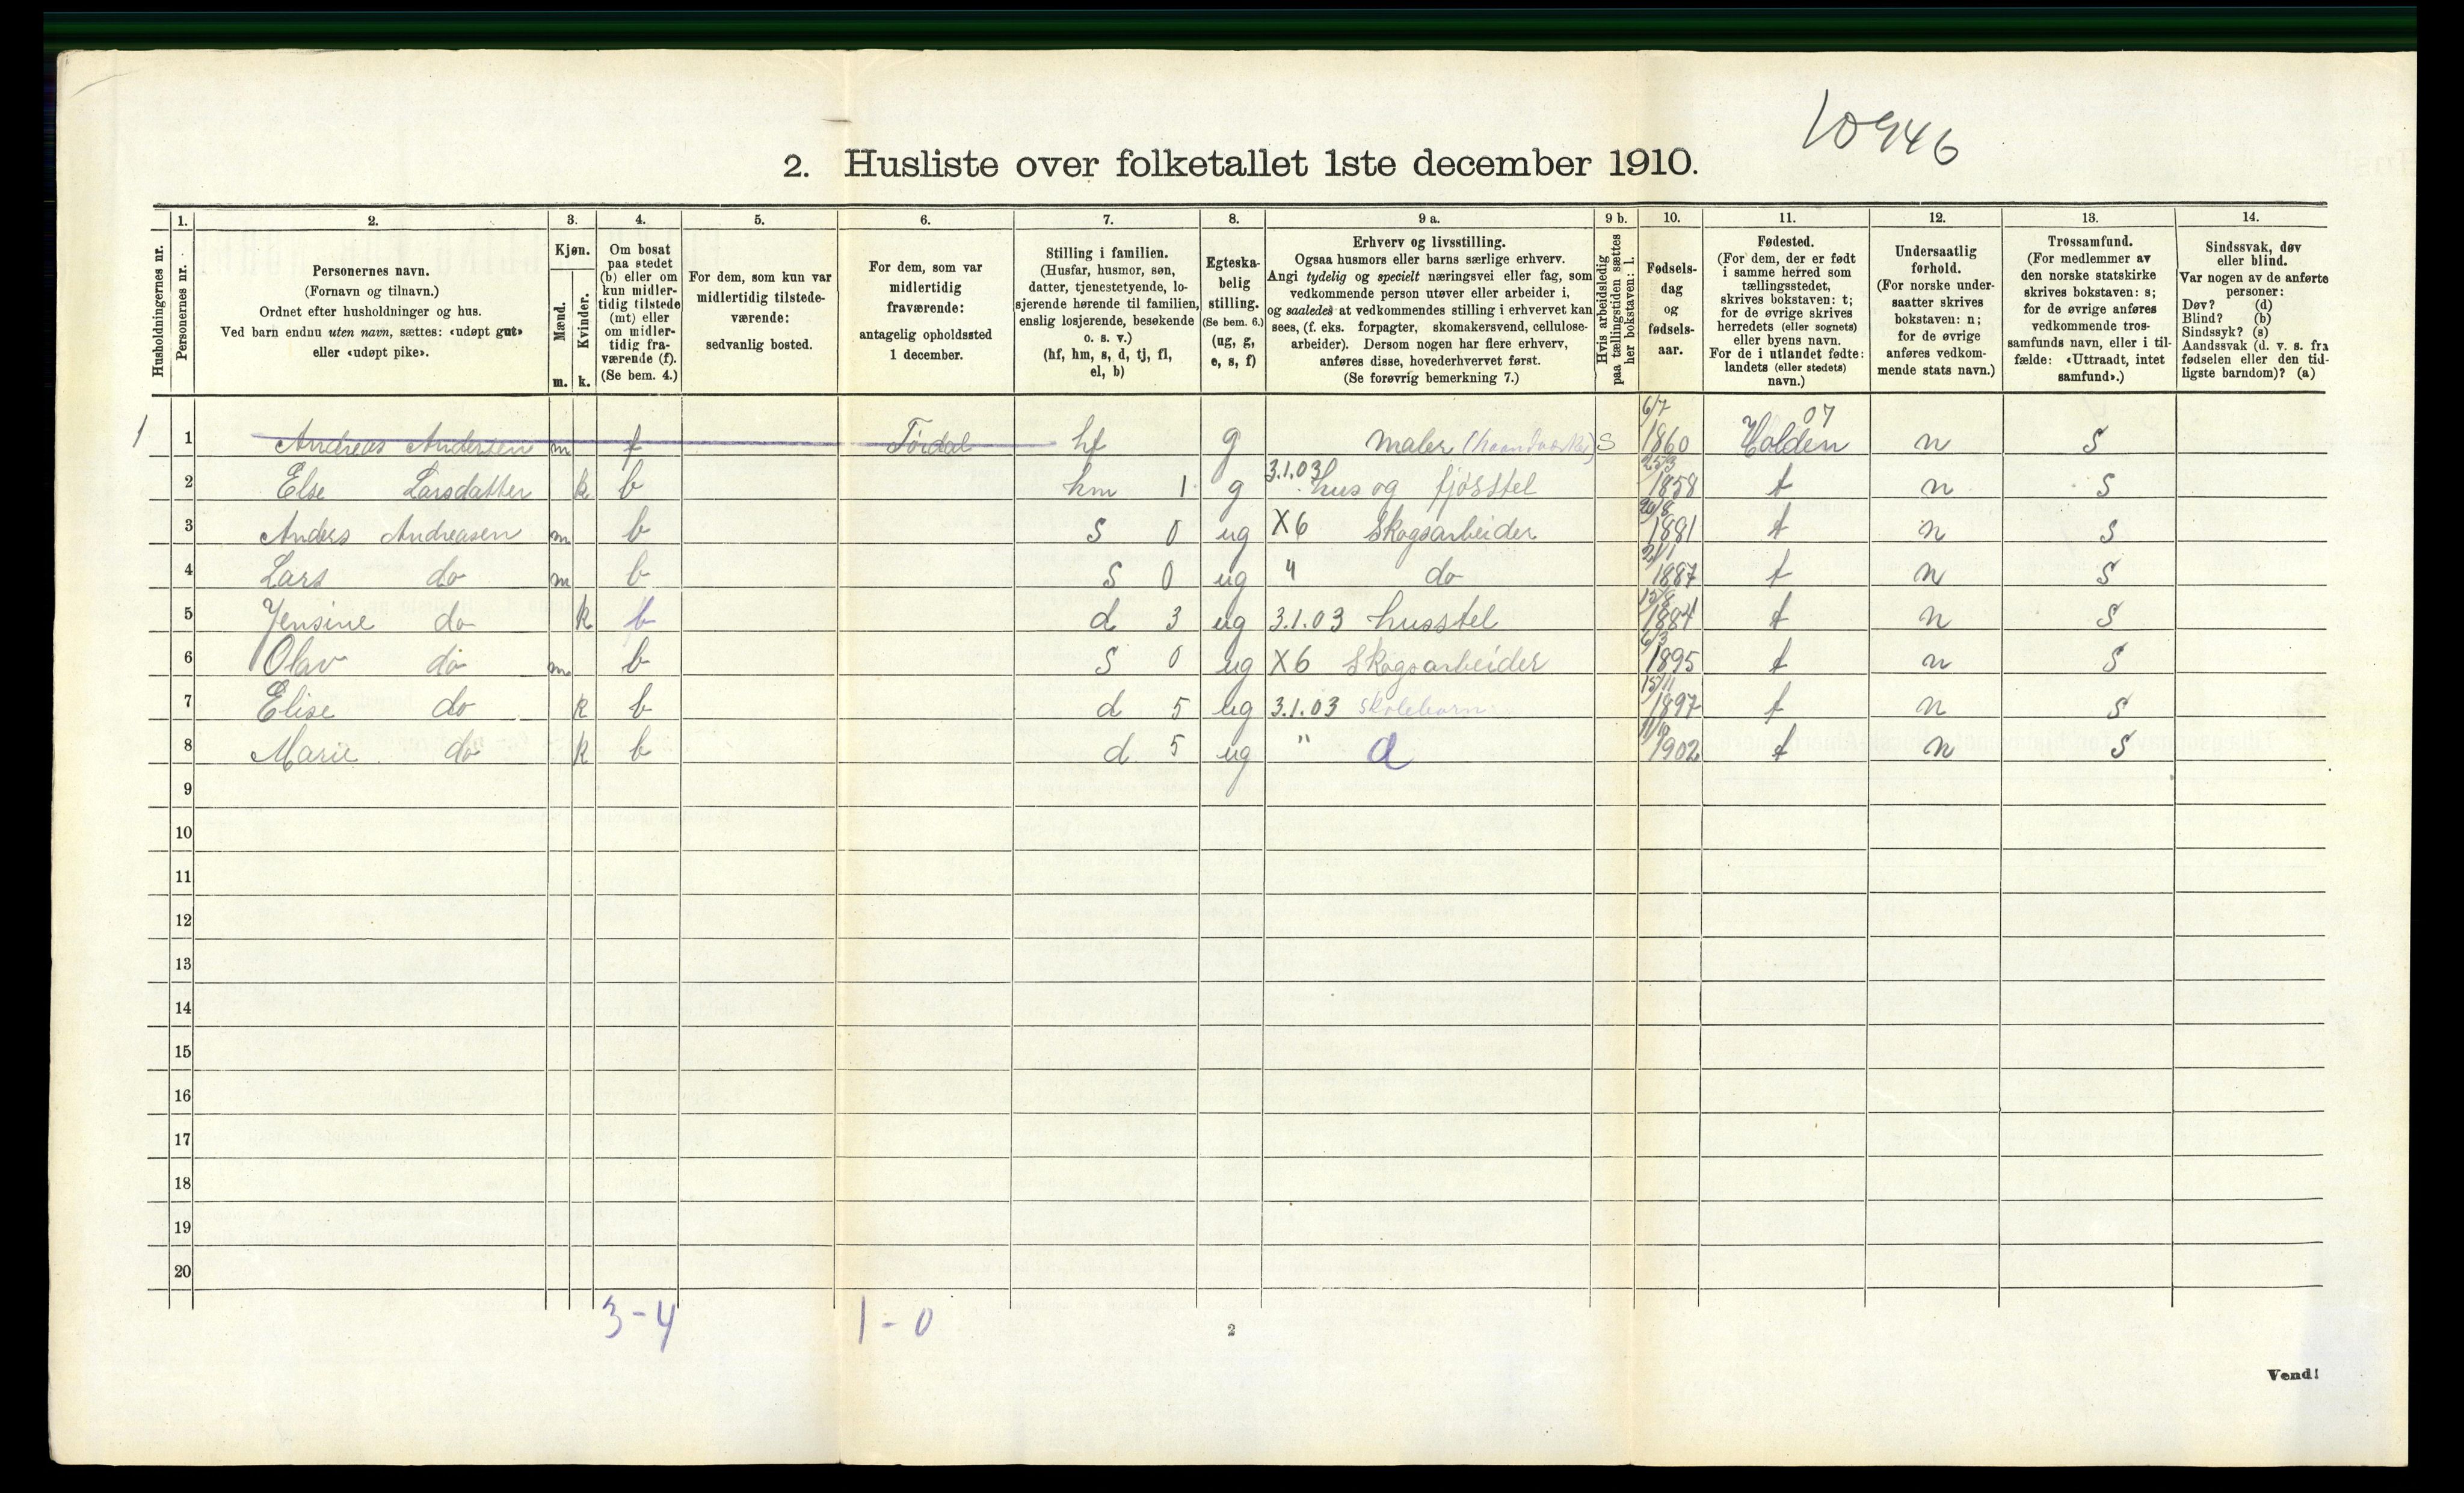 10946
2. Husliste over folketallet 1ste december 1910.
Husholdningernes nr.
1.
Personernes nr.
2.
Personernes navn.
(Fornavn og tilnavn.)
Ordnet efter husholdninger og hus.
Ved barn endnu uten navn, sættes: «udøpt gut»
eller «udøpt pike».
3.
Kjøn.
Mænd. m.
Kvinder. k.
4.
Om bosat
paa stedet
(b) eller om
kun midler-
tidig tilstede
(mt) eller
om midler-
tidig fra-
værende (f).
(Se bem. 4.)
5.
For dem, som kun var
midlertidig tilstede-
værende:
sedvanlig bosted.
6.
For dem, som var
midlertidig
fraværende:
antagelig opholdssted
1 december.
7.
Stilling i familien.
(Husfar, husmor, søn,
datter, tjenestetyende, lo-
sjerende hørende til familien,
enslig losjerende, besøkende
o. s. v.)
(hf, hm, s, d, tj, fl,
el, b)
8.
Egteska-
belig
stilling.
(Se bem. 6.)
(ug, g,
e, s, f)
9 a.
Erhverv og livsstilling.
Ogsaa husmors eller barns særlige erhverv.
Angi tydelig og specielt næringsvei eller fag, som
vedkommende person utøver eller arbeider i,
og saaledes at vedkommendes stilling i erhvervet kan
sees, (f. eks. forpagter, skomakersvend, cellulose-
arbeider). Dersom nogen har flere erhverv,
anføres disse, hovederhvervet først.
(Se forøvrig bemerkning 7.)
9 b.
Hvis arbeidsledig
paa tællingstiden sættes
her bokstaven: l.
10.
Fødsels-
dag
og
fødsels-
aar.
11.
Fødested.
(For dem, der er født
i samme herred som
tællingsstedet,
skrives bokstaven: t;
for de øvrige skrives
herredets (eller sognets)
eller byens navn.
For de i utlandet fødte:
landets (eller stedets)
navn.)
12.
Undersaatlig
forhold.
(For norske under-
saatter skrives
bokstaven: n;
for de øvrige
anføres vedkom-
mende stats navn.)
13.
Trossamfund.
(For medlemmer av
den norske statskirke
skrives bokstaven: s;
for de øvrige anføres
vedkommende tros-
samfunds navn, eller i til-
fælde: «Uttraadt, intet
samfund».)
14.
Sindssvak, døv
eller blind.
Var nogen av de anførte
personer:
Døv? (d)
Blind? (b)
Sindssyk? (s)
Aandssvak (d. v. s. fra
fødselen eller den tid-
ligste barndom)? (a)
1 1 Andreas Andersen m f Tördal hf g Maler (haandverker) S 6/7 1860 Holden 07 n S
2 Else Larsdatter k b hm 1 g 3.1.03 hus og fjösstel 25/3 1858 t n S
3 Anders Andreasen m b S 0 ug X6 Skogsarbeider 20/8 1881 t n S
4 Lars do m b S 0 ug " do 21/1 1887 t n S
5 Jensine do k b d 3 ug 3.1.03 husstel 15/8 1884 t n S
6 Olav do m b S 0 ug X6 Skogsarbeider 6/3 1895 t n S
7 Elise do k b d 5 ug 3.1.03 skolebarn 15/11 1897 t n S
8 Marie do k b d 5 ug " d 11/10 1902 t n S
9
10
11
12
13
14
15
16
17
18
19
20
3-4 1-0
2
Vend!